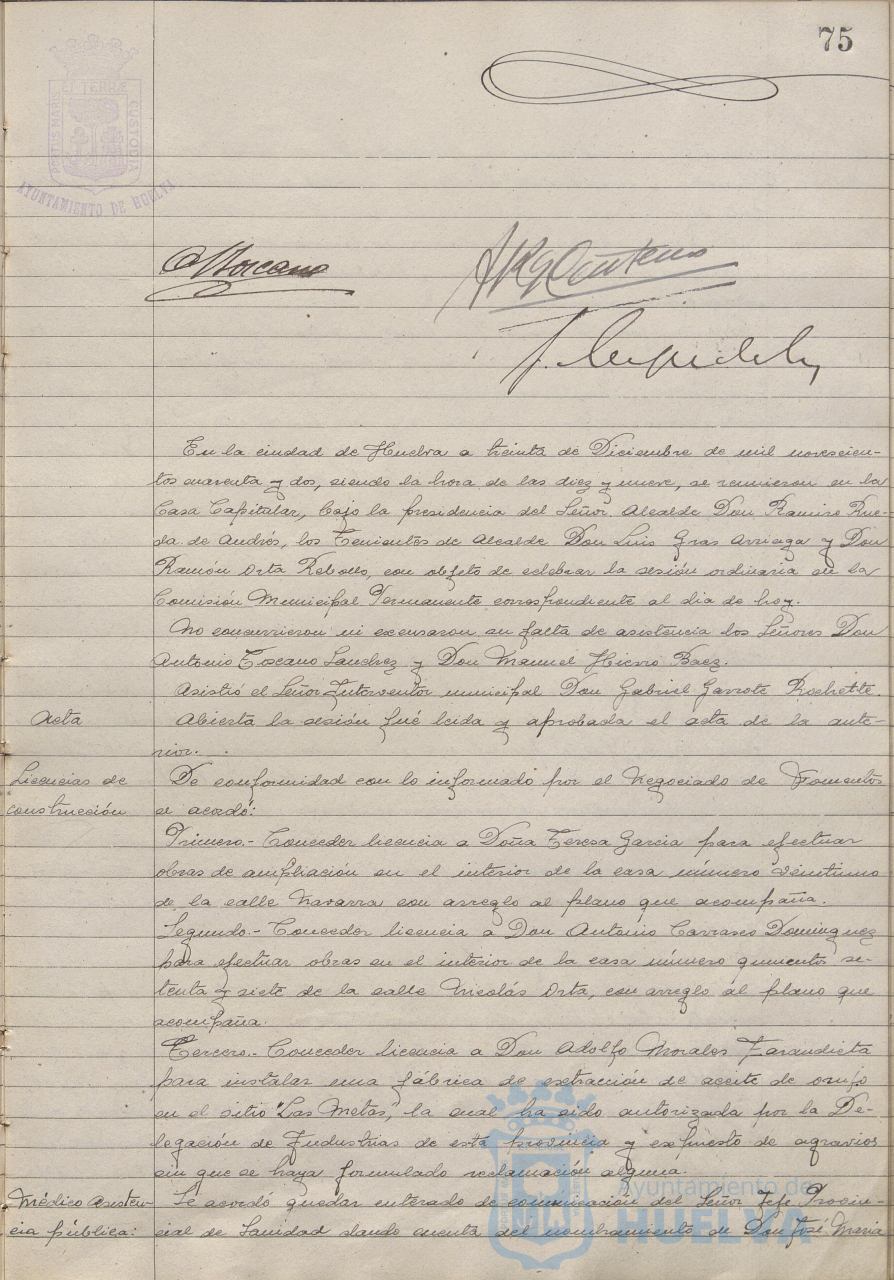 75
PORTUS MARIS ET TERRÆ CUSTODIA
AYUNTAMIENTO DE HUELVA
En la ciudad de Huelva a treinta de Diciembre de mil novecien-
tos cuarenta y dos, siendo la hora de las diez y nueve, se reunieron en la
Casa Capitular, bajo la presidencia del Señor Alcalde Don Ramiro Rue-
da de Andrés, los Tenientes de Alcalde Don Luis Gras Arriaga y Don
Ramón Orta Rebollo, con objeto de celebrar la sesión ordinaria de la
Comisión Municipal Permanente correspondiente al dia de hoy.
No concurrieron ni excusaron su falta de asistencia los Señores Don
Antonio Toscano Sanchez y Don Manuel Hierro Baez.
Asistió el Señor Interventor municipal Don Gabriel Garrote Rochette.
Acta
Abierta la sesión fué leida y aprobada el acta de la ante-
rior.
Licencias de
construcción
De conformidad con lo informado por el Negociado de Fomentos
se acordó:
Primero.- Conceder licencia a Doña Teresa Garcia para efectuar
obras de ampliación en el interior de la casa número veintiuno
de la calle Navarra con arreglo al plano que acompaña.
Segundo.- Conceder licencia a Don Antonio Carrasco Dominguez
para efectuar obras en el interior de la casa número quinientos se-
tenta y siete de la calle Nicolás Orta, con arreglo al plano que
acompaña.
Tercero.- Conceder licencia a Don Adolfo Morales Zarandieta
para instalar una fábrica de extracción de aceite de orujo
en el sitio "Las Metas", la cual ha sido autorizada por la De-
legación de Industrias de esta provincia y expuesto de agravios
sin que se haya formulado reclamación alguna.
Médico asisten-
cia pública:
Se acordó quedar enterado de comunicación del Señor Jefe Provin-
cial de Sanidad dando cuenta del nombramiento de Don José Maria
Ayuntamiento de
HUELVA